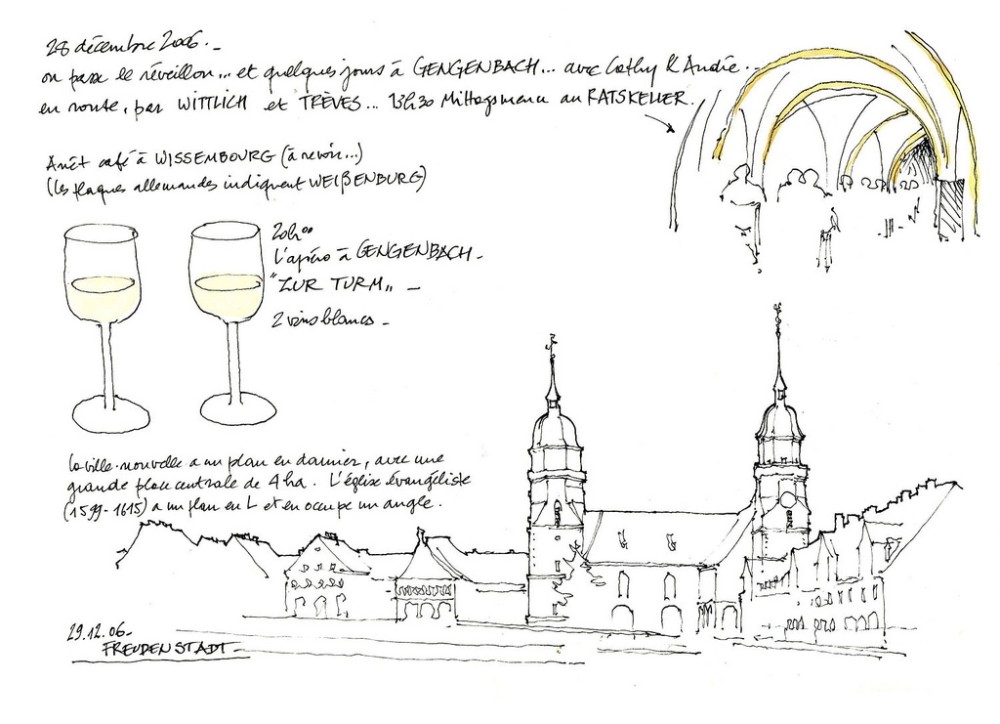 28 décembre 2006. _
on passe le réveillon... et quelques jours à GENGENBACH... avec Cathy & André...
en route, par WITTLICH et TRÈVES... 13h30 Mittagsmenu au RATSKELLER.
Arrêt café à WISSEMBOURG (à revoir...)
(les plaques allemandes indiquent WEIßENBURG)
20h00
l'apéro à GENGENBACH -
"ZUR TURM" _
2 vins blancs -
la ville-nouvelle a un plan en damier, avec une
grande place centrale de 4 ha. L'église évangéliste
(1599-1615) a un plan en L et en occupe un angle.
29.12.06-
FREUDENSTADT-